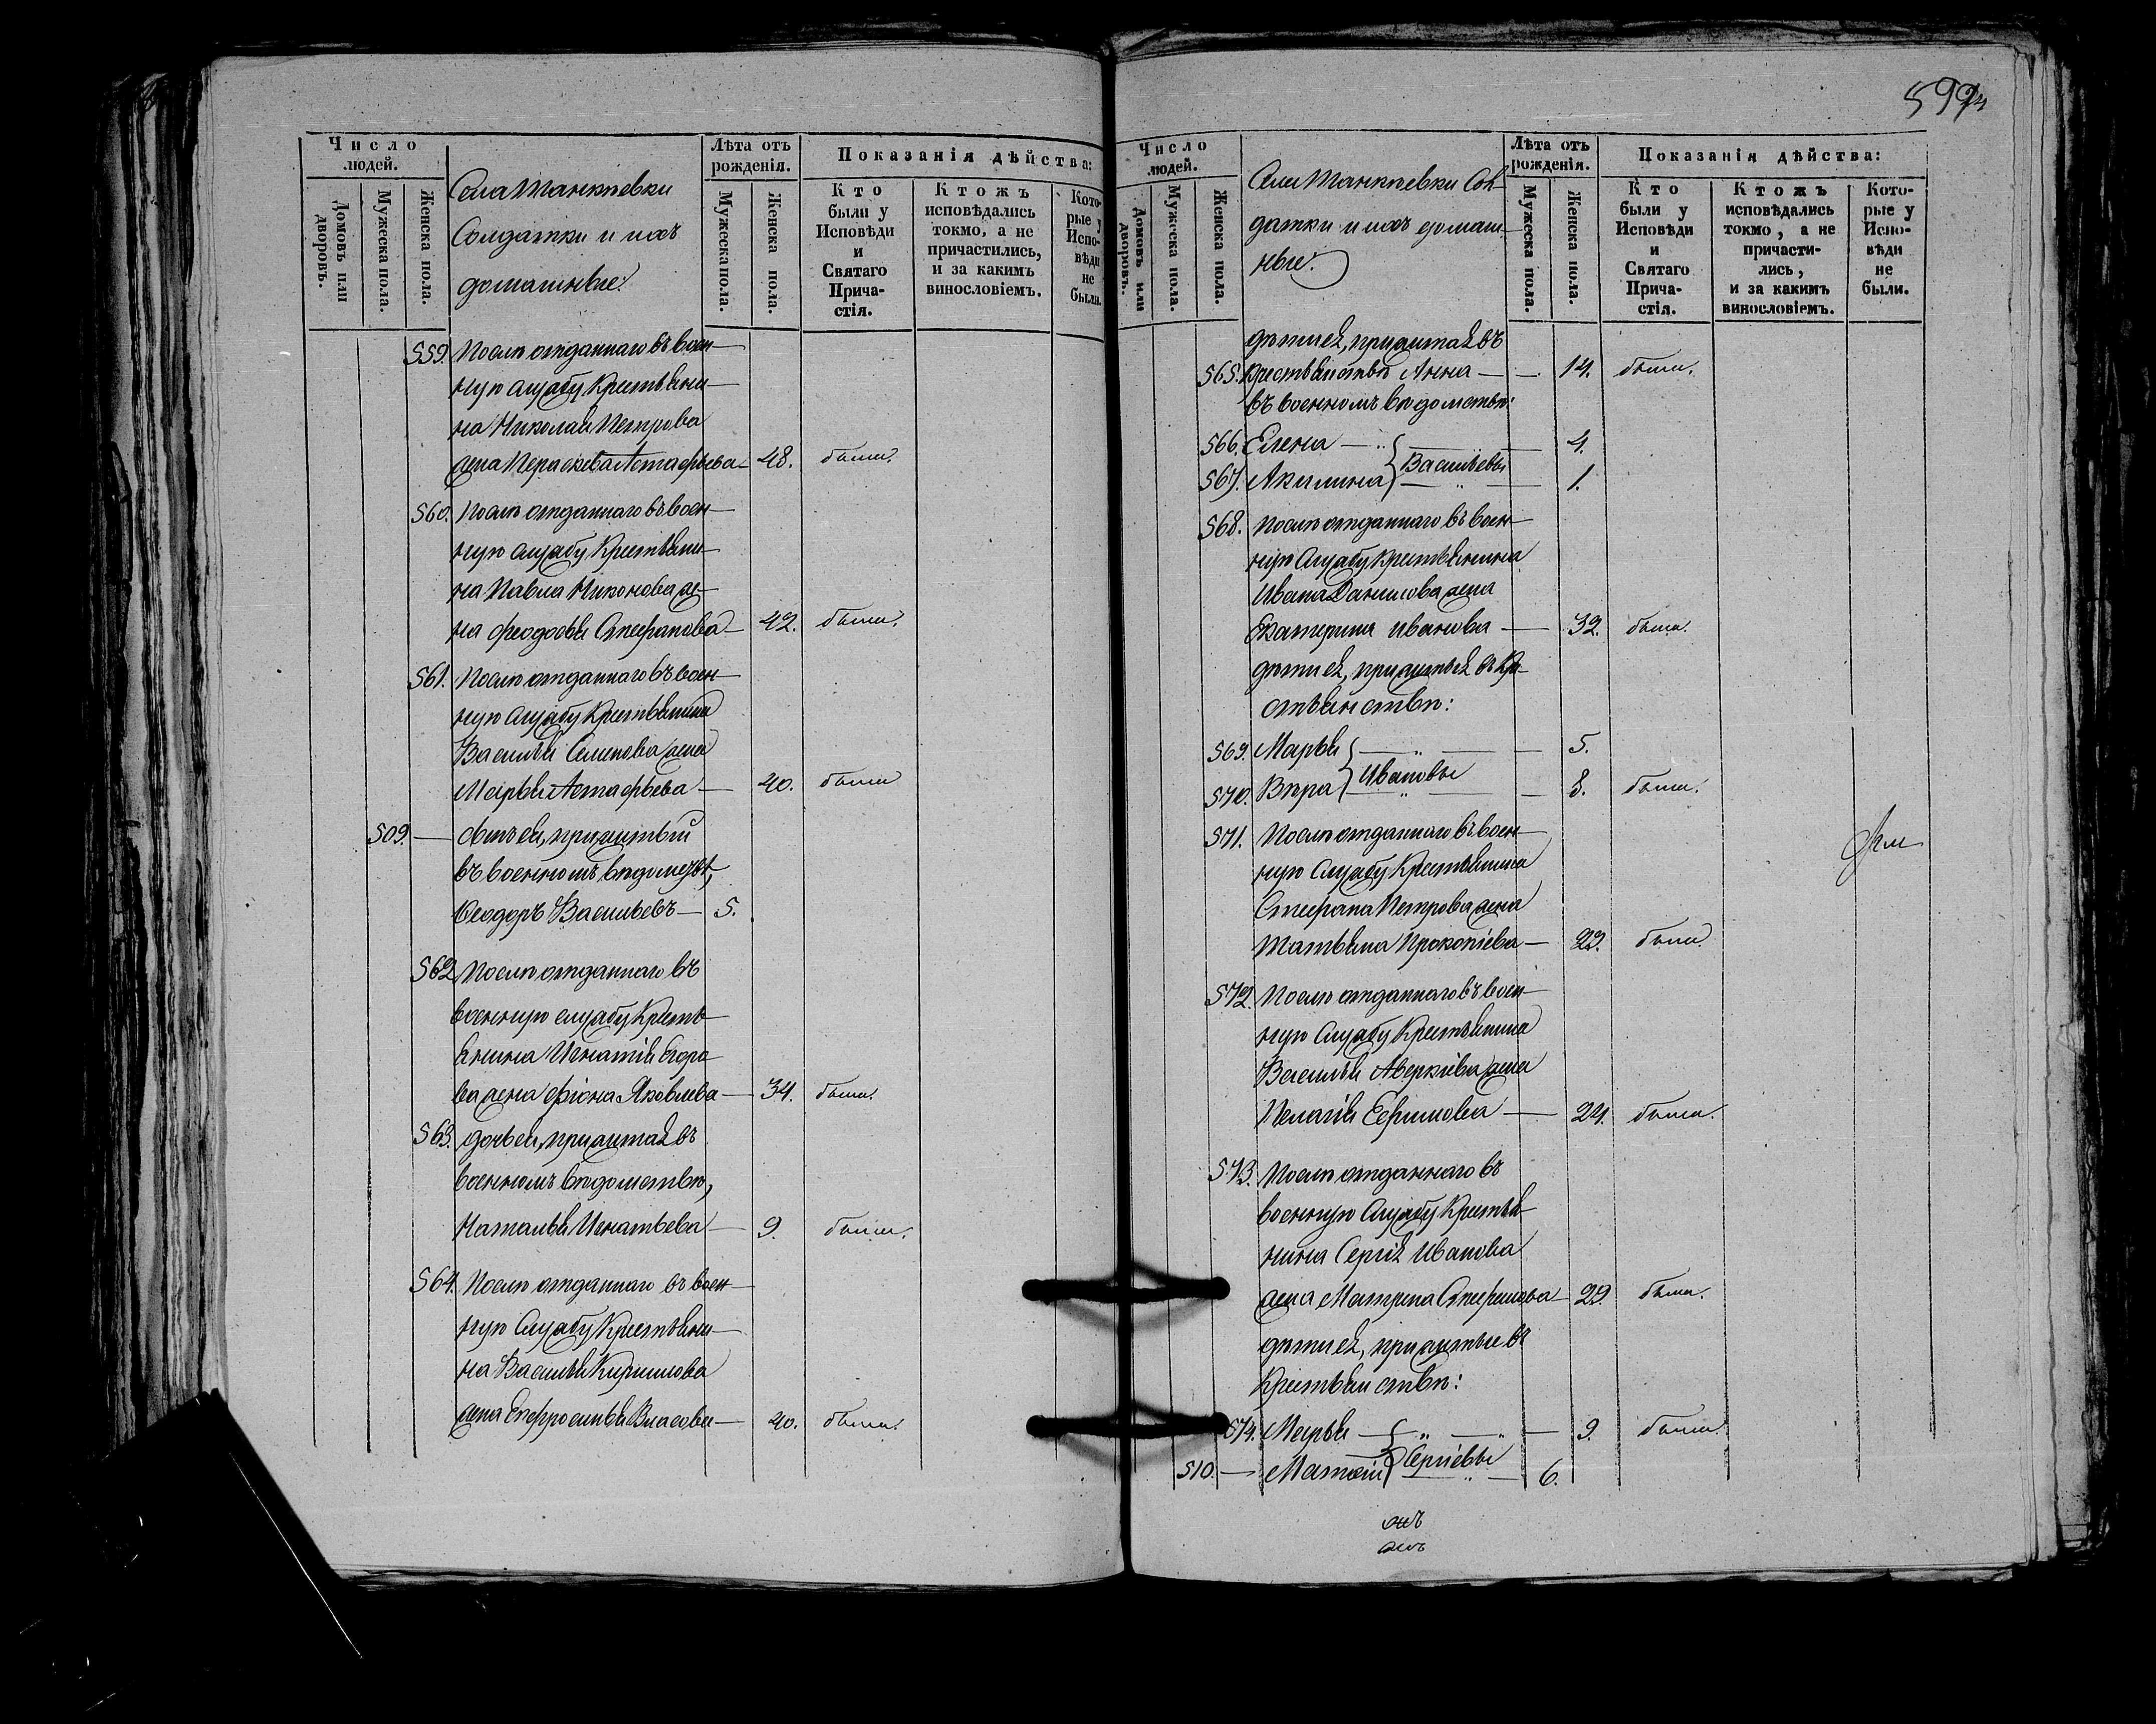 Число людей.
Домовъ или дворовъ.
Мужеска пола.
Женска пола.
Села Танкѣевки
Солдатки и ихъ
домашнѣе:
Лѣта отъ рожденія.
Мужеска пола.
Женска пола.
Показанія дѣйства:
Кто были у Исповѣди и Святаго Причастія.
Ктожъ исповѣдались токмо, а не причастились, и за какимъ винословіемъ.
Которые у Исповѣди не были.
559. Послѣ отданнаго въ воен-
ную службу крестьяни-
на Николая Петрова
жена Параскева Астафьева 48. была.
560. Послѣ отданнаго въ воен-
ную службу крестьяни-
на Павла Никонова же-
на Феодосья Стефанова 42. была.
561. Послѣ отданнаго въ воен-
ную службу крестьянина
Василья Семенова жена
Марья Астафьева 40. была
509. Сынъ ея, прижитый
въ военномъ вѣдомствѣ,
Ѳеодоръ Васильевъ 5.
562. Послѣ отданнаго въ
военную службу кресть-
янина Игнатія Егоро
ва жена Фіона Яковлева 34. была.
563. дочь ея, прижитая въ
военномъ вѣдомствѣ,
Наталья Игнатьева 9. была.
564. Послѣ отданнаго въ воен-
ную службу крестьяни-
на Василья Кирилова
жена Евфросинья Власова 40. была.
599
Число людей.
Домовъ или дворовъ.
Мужеска пола.
Женска пола.
Села Танкѣевки Сол-
датки и ихъ домаш-
нѣе.
Лѣта отъ рожденія.
Мужеска пола.
Женска пола.
Показанія дѣйства:
Кто были у Исповѣди и Святаго Причастія.
Ктожъ исповѣдались токмо, а не причастились, и за какимъ винословіемъ.
Которые у Исповѣди не были.
дѣти ея, прижитая въ
565. Крестьянствѣ Анна 14. была.
въ военномъ вѣдомствѣ:
566. Елена 4.
Васильевы
567. Акилина 1.
568. Послѣ отданнаго въ воен-
ную службу крестьянина
Ивана Данилова жена
Екатерина Иванова 32. была.
дѣти ея, прижитыя въ кре-
стьянствѣ:
569. Марья 5.
Ивановы
570. Вѣра 8. была.
571. Послѣ отданнаго въ воен-
ную службу крестьянина
Стефана Петрова жена
Татьяна Прокопіева 23. была.
572. Послѣ отданнаго въ воен-
ную службу крестьянина
Василья Аверкіева жена
Пелагія Ефимова 24. была.
573. Послѣ отданнаго въ
военную службу крестья-
нина Сергія Иванова
жена Матрена Стефанова 29. была.
дѣти ея, прижитые въ
крестьянствѣ:
574. Марья 9. была.
Сергіевы
510. Матѳій 6.